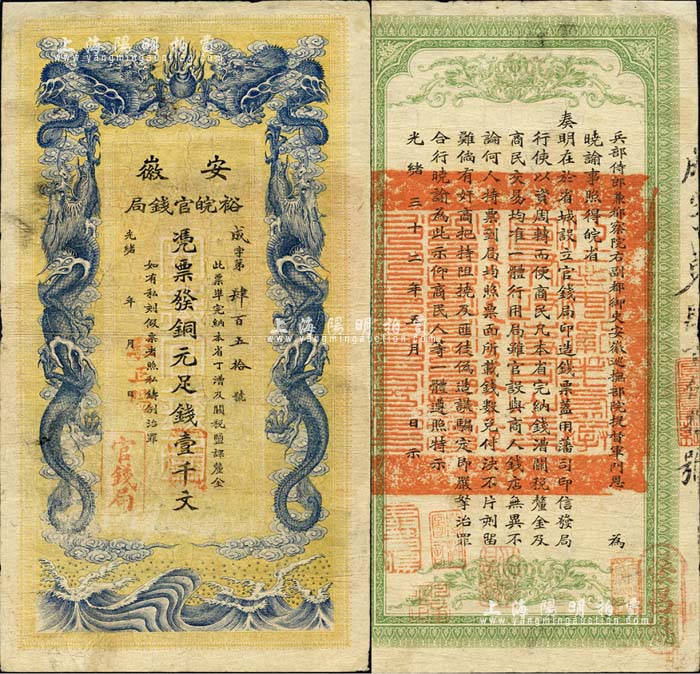 上海陽明拍賣
www.yangmingauction.com
安徽
裕皖官錢局
成字第肆百五拾號
憑票發銅元足錢壹千文
此票準完納本省丁漕及關稅鹽課釐金
如有私刻假票者照私鑄例治罪
光緒 年 月 日
官錢局
上海陽明拍賣
www.yangmingauction.com
兵部侍郎兼都察院右副都御史安徽巡撫部院提督軍門恩 為
曉諭事照得皖省
奏明在於省城設立官錢局印造錢票蓋用藩司印信發局
行使以資周轉而便商民凡本省完納錢漕關稅釐金及
商民交易均准一體行用局雖官設與商人錢店無異不
論何人持票到局均照票面所載錢數兌付決不片刻留
難倘有奸商把持阻撓及匪徒偽造誆騙定即嚴拏治罪
合行曉諭為此示仰商民人等一體遵照特示
光緒三十二年五月 日示
號
上海陽明拍賣
www.yangmingauction.com
上海陽明拍賣
www.yangmingauction.com